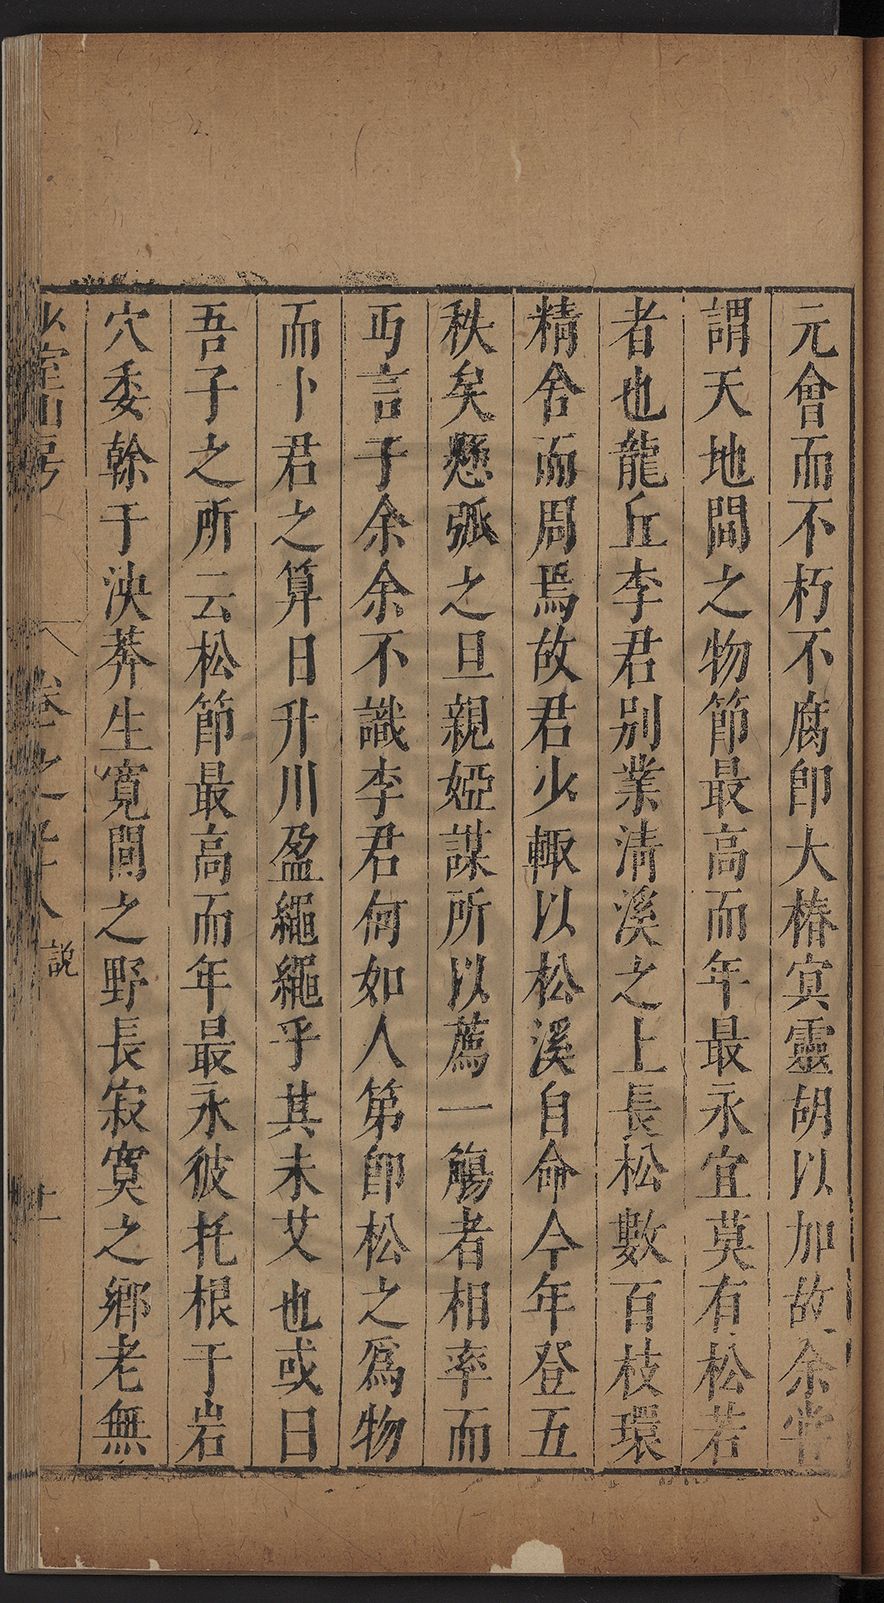 元會而不朽不腐卽大椿㝠靈胡以加故余嘗
謂天地間之物節最高而年最永宜莫有松若
者也龍丘李君別業清溪之上長松數百枝環
精舍而周焉故君少輙以松溪自命今年登五
秩矣懸弧之旦親婭謀所以薦一觴者相率而
丐言于余余不識李君何如人第卽松之爲物
而卜君之算日升川盈繩繩乎其未艾也或曰
吾子之所云松節最高而年最永彼托根于岩
穴委幹于泱莽生寬閒之野長寂寞之鄉老無
少室山房 卷之 八 說 十一